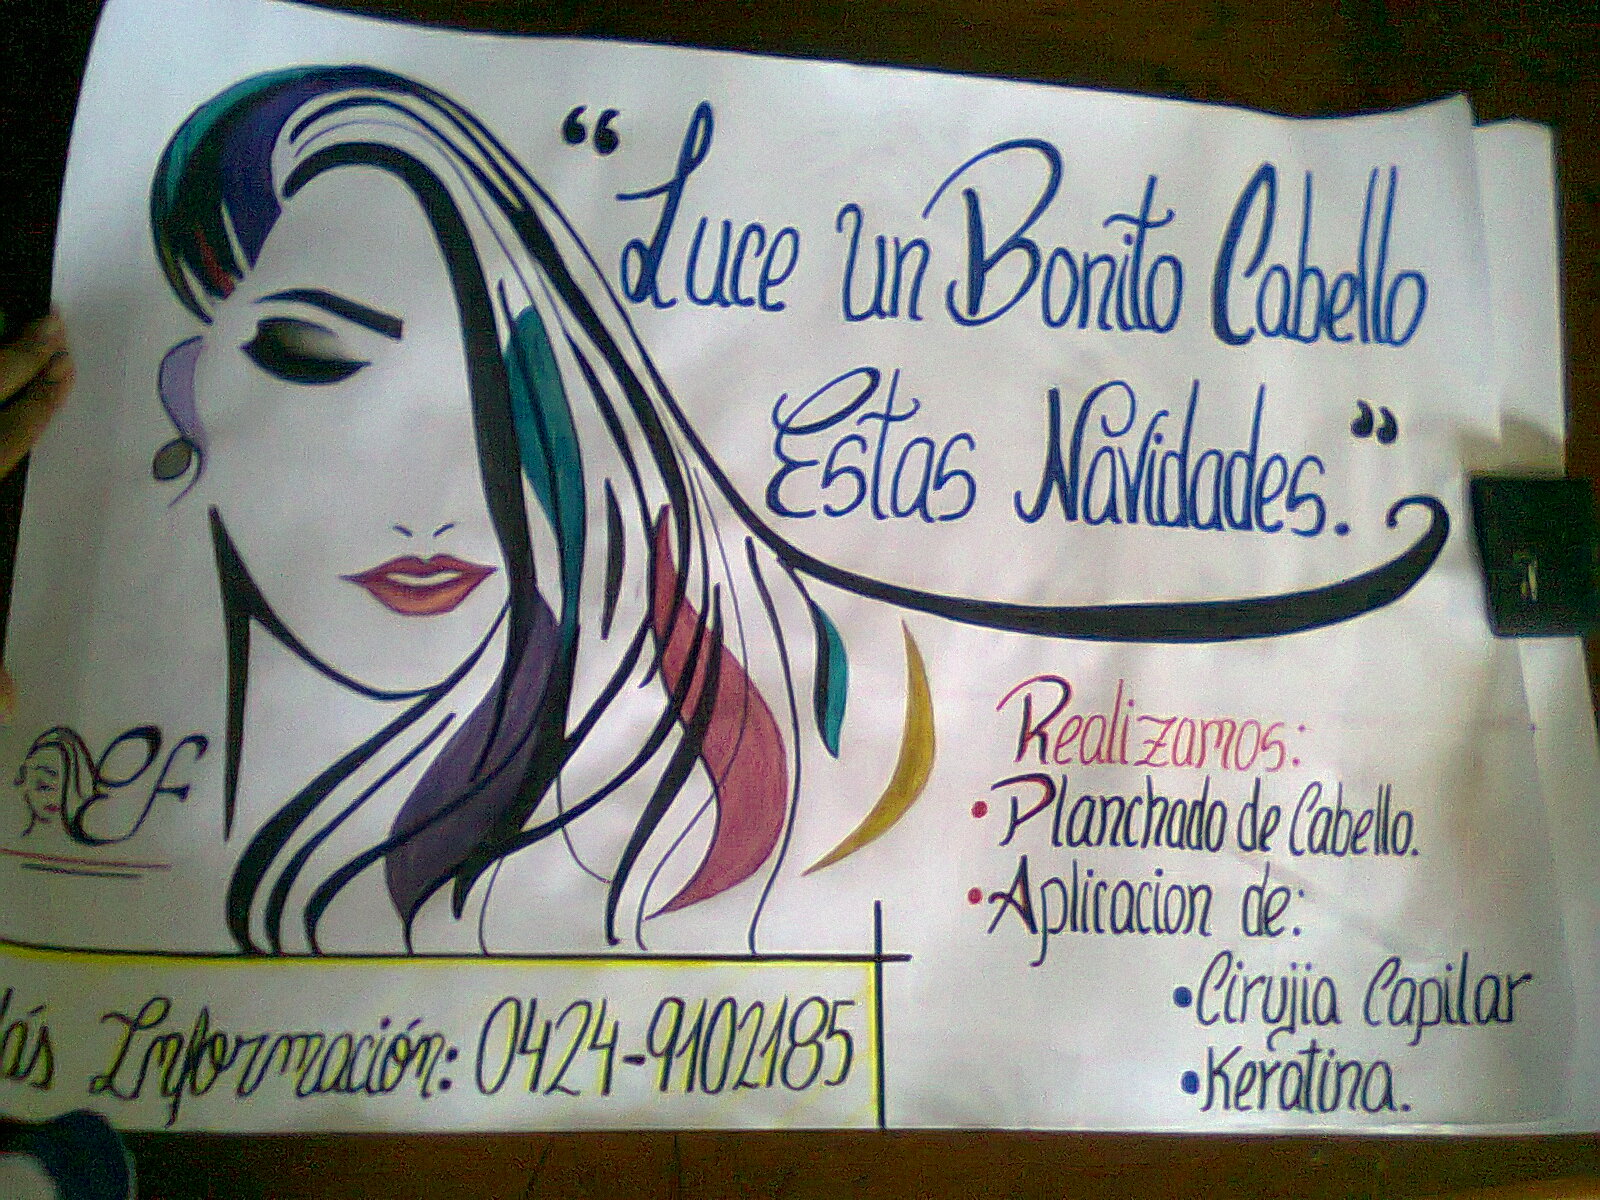 “Luce un Bonito Cabello
Estas Navidades.”
Realizamos:
• Planchado de Cabello.
• Aplicacion de:
• Cirujia Capilar
• Keratina.
ef
ás Información: 0424-9102185